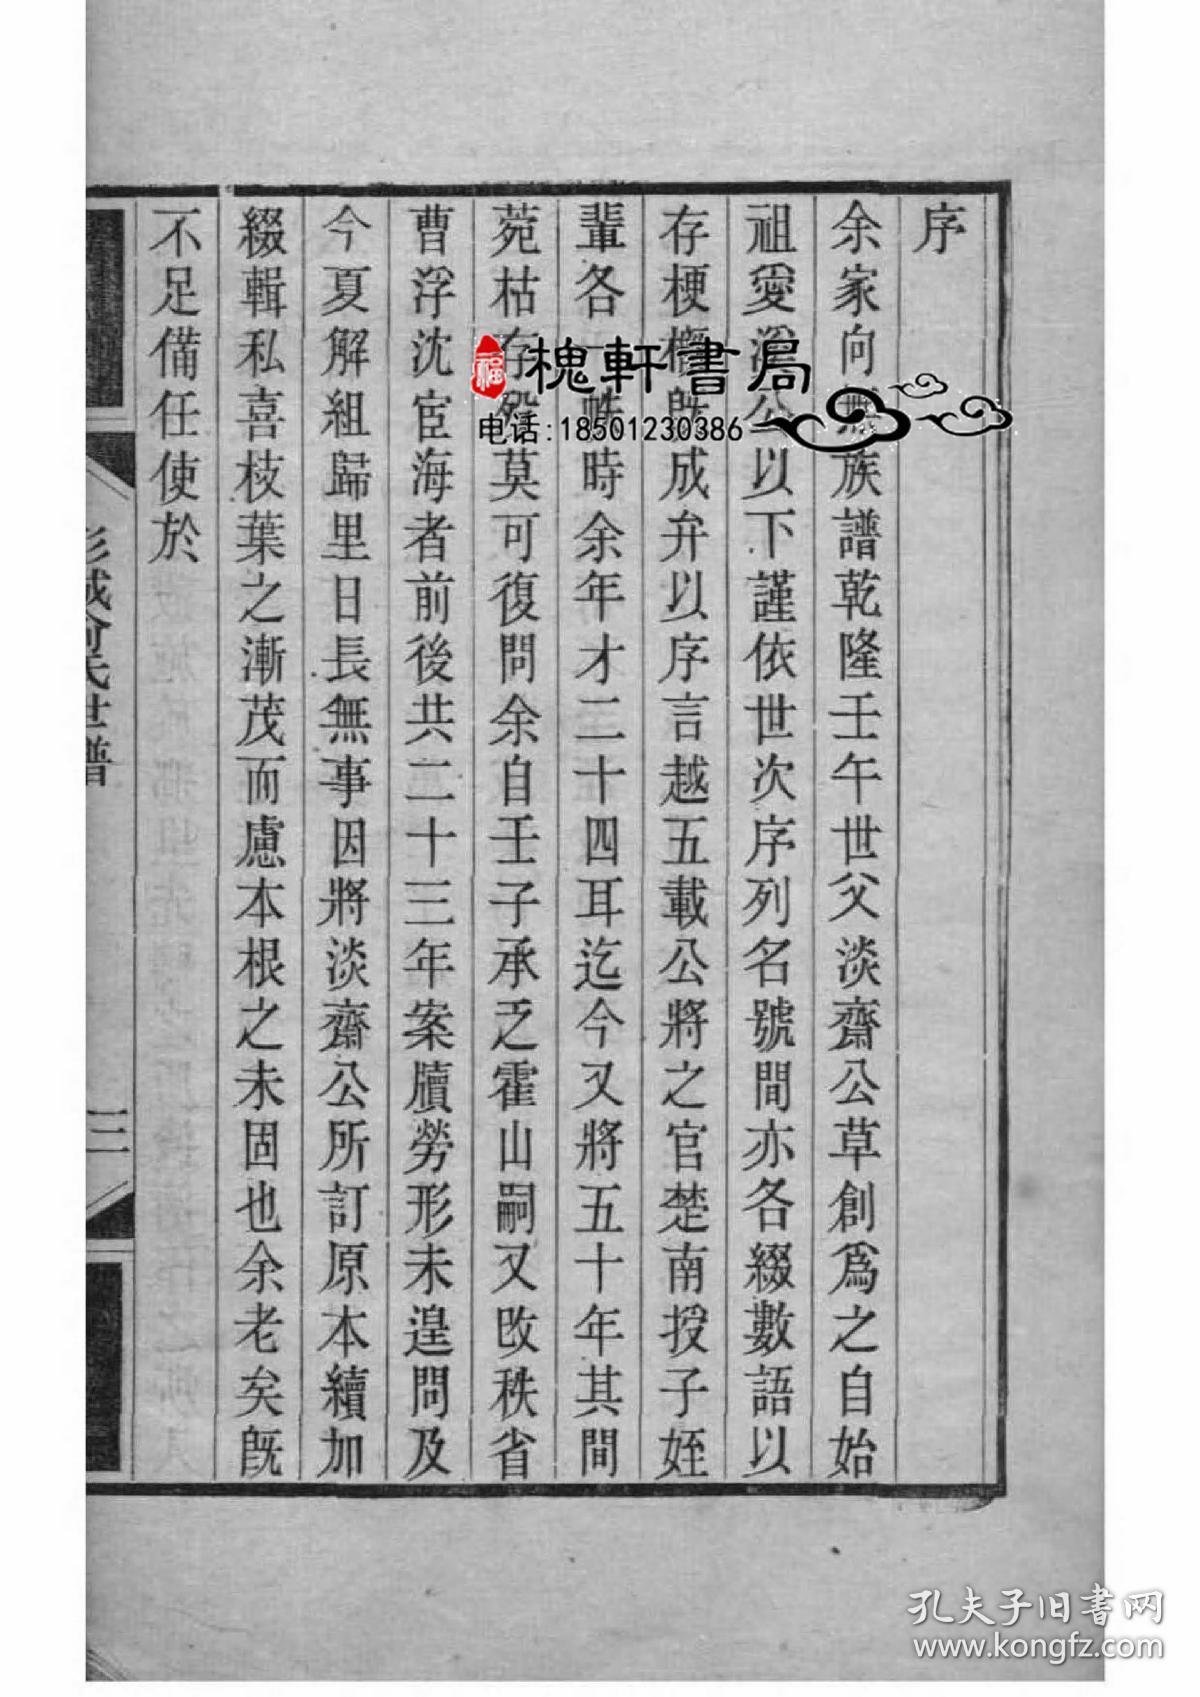 序
余家向無族譜乾隆壬午世父淡齋公草創爲之自始
祖愛溪公以下謹依世次序列名號間亦各綴數語以
存梗概既成弁以序言越五載公將之官楚南授子姪
輩各一帙時余年才二十四耳迄今又將五十年其間
菀枯存歿莫可復問余自壬子承乏霍山嗣又改秩省
曹浮沈宦海者前後共二十三年案牘勞形未遑問及
今夏解組歸里日長無事因將淡齋公所訂原本續加
綴輯私喜枝葉之漸茂而慮本根之未固也余老矣既
不足備任使於
彭城俞氏世譜
三
福
槐軒書局
电话:18501230386
孔夫子旧書网
www.kongfz.com